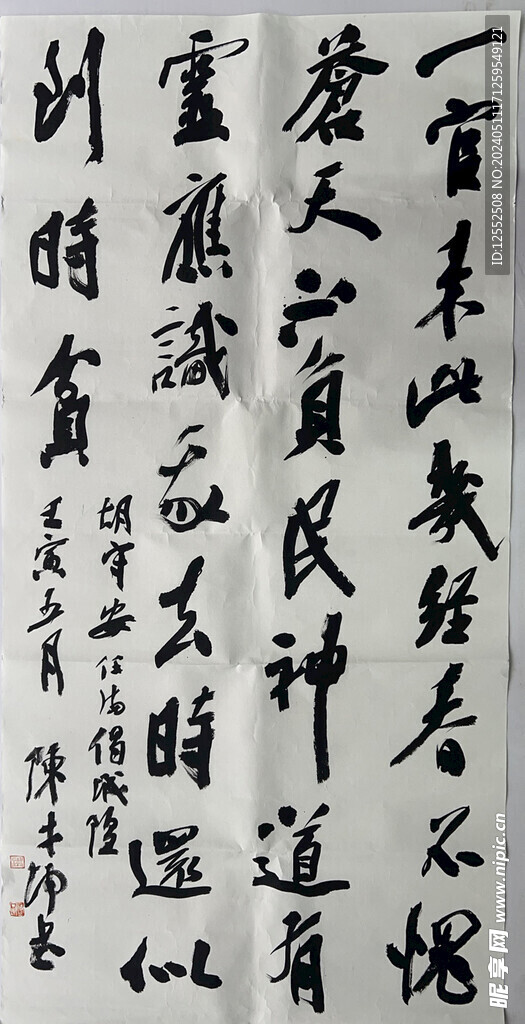 一官来此幾经春不愧
蒼天不負民神道有
靈應識我去時還似
到時貧
胡守安任满谒城隍
壬寅五月 陳
书
ID:12552508 NO:20240511171259549121
昵享网 www.nipic.cn